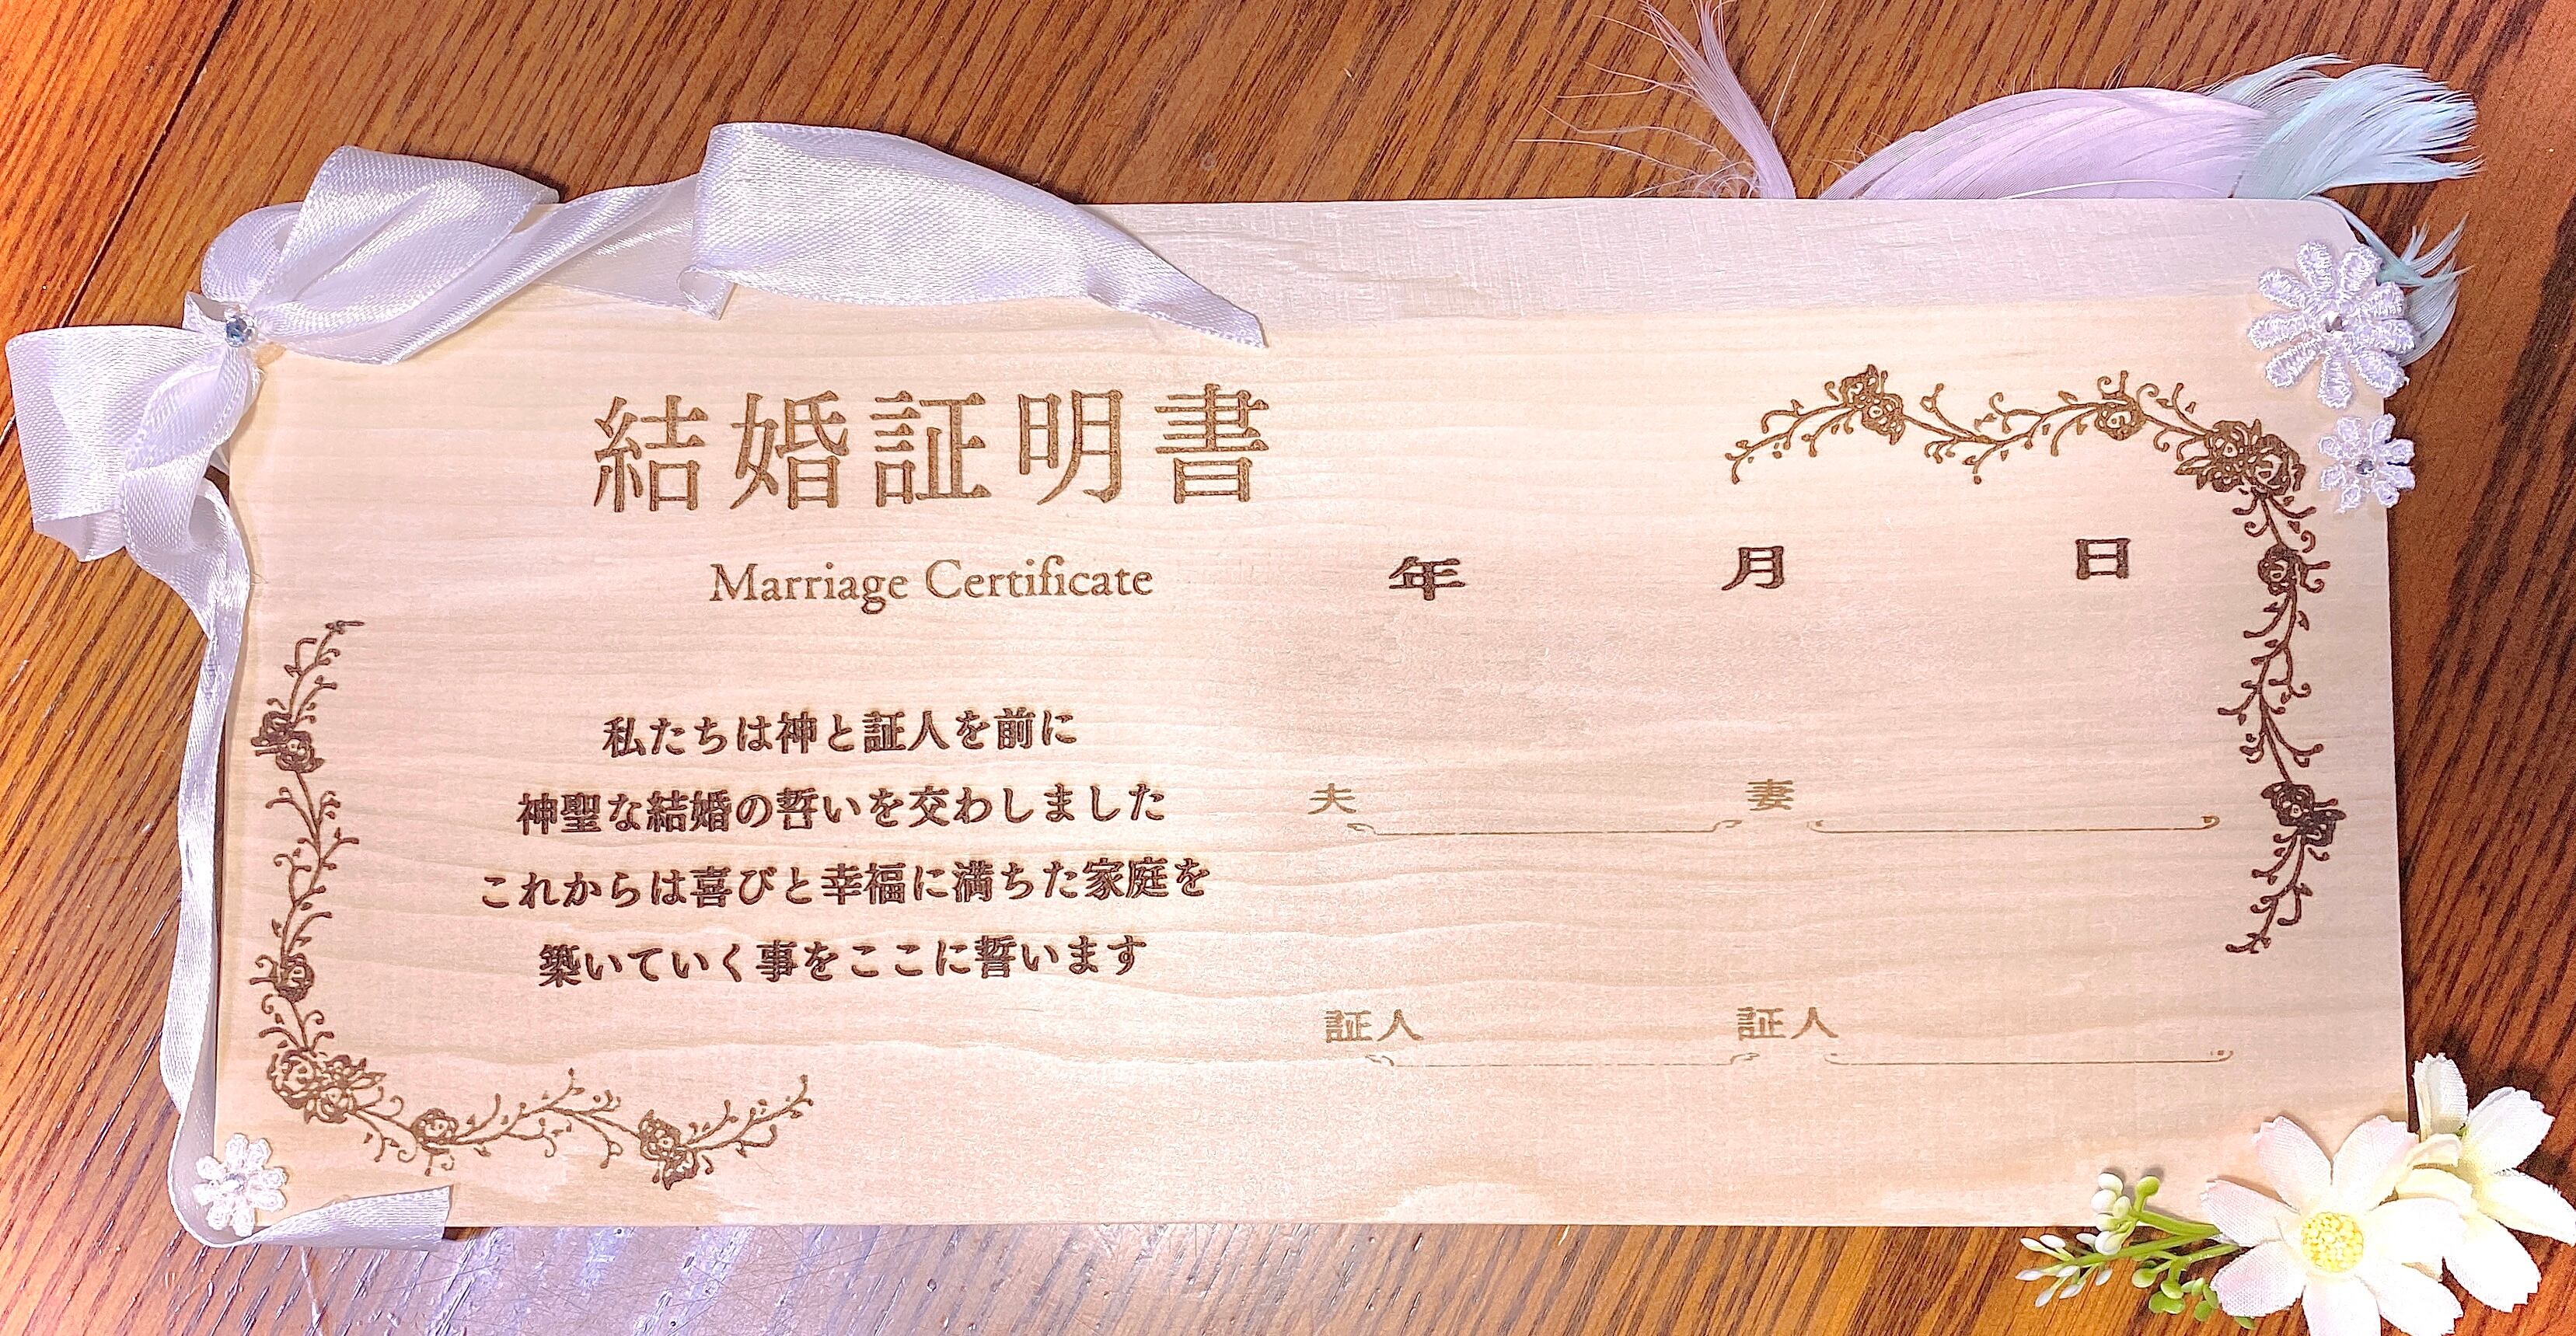 結婚証明書
Marriage Certificate
私たちは神と証人を前に
神聖な結婚の誓いを交わしました
これからは喜びと幸福に満ちた家庭を
築いていく事をここに誓います
年 月 日
夫 妻
証人 証人